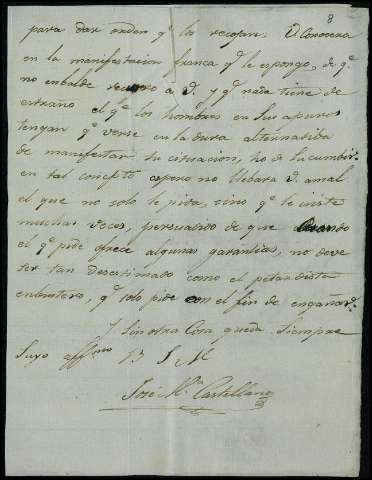 8
para dar orden qe. los recojan. V. Conocera
en la manifestacion franca qe. le espongo, de qe.
no enbalde recurro á V. y qe. nada tiene de
estraño el qe. los hombres en sus apuros
tengan qe. verse en la dura alternatiba
de manifestar su situacion, ho de sucumbir.
en tal concepto espero no llebara V. amal
el que no solo le pida, sino qe. le insta
muchas veces, persuadido de que cuando
el qe. pide ofrece algunas garantias, no debe
ser tan desestimado como el petardista
enbustero, qe. solo pide con el fin de engañar.
Y sin otra Cosa queda siempre
Suyo affmo. B S M
José Ma. Castellano